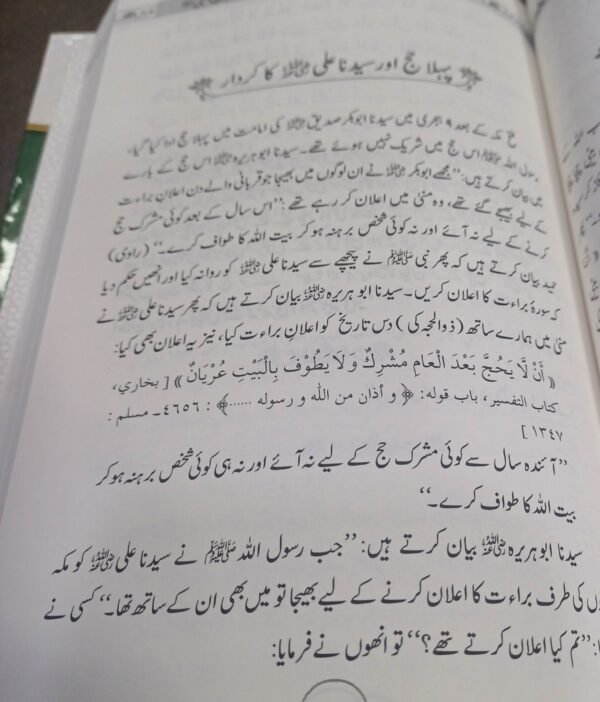 پہلا حج اور سیدنا علی رضی اللہ عنہ کا کردار
فتح مکہ کے بعد ۹ ہجری میں سیدنا ابوبکر صدیق رضی اللہ عنہ کی امامت میں پہلا حج ادا کیا گیا،
رسول اللہ ﷺ اس حج میں شریک نہیں ہوئے تھے۔ سیدنا ابوہریرہ رضی اللہ عنہ اس حج کے بارے
میں بیان کرتے ہیں: ’’مجھے ابوبکر رضی اللہ عنہ نے ان لوگوں میں بھیجا جو قربانی والے دن اعلانِ براءت
کے لیے بھیجے گئے تھے، وہ منیٰ میں اعلان کر رہے تھے: ’’اس سال کے بعد کوئی مشرک حج
کرنے کے لیے نہ آئے اور نہ کوئی شخص برہنہ ہو کر بیت اللہ کا طواف کرے۔‘‘ (راوی)
حمید بیان کرتے ہیں کہ پھر نبی ﷺ نے پیچھے سے سیدنا علی رضی اللہ عنہ کو روانہ کیا اور انھیں حکم دیا
کہ سورۂ براءت کا اعلان کریں۔ سیدنا ابو ہریرہ رضی اللہ عنہ بیان کرتے ہیں کہ پھر سیدنا علی رضی اللہ عنہ نے
منیٰ میں ہمارے ساتھ (ذوالحجہ کی) دس تاریخ کو اعلانِ براءت کیا، نیز یہ اعلان بھی کیا:
« أَنْ لَّا يَحُجَّ بَعْدَ الْعَامِ مُشْرِكٌ وَلَا يَطُوْفَ بِالْبَيْتِ عُرْيَانٌ » [ بخاري،
كتاب التفسير، باب قوله: ﴿ و أذان من الله و رسوله ......﴾ : ٤٦٥٦۔ مسلم :
١٣٤٧ ]
’’آئندہ سال سے کوئی مشرک حج کے لیے نہ آئے اور نہ ہی کوئی شخص برہنہ ہو کر
بیت اللہ کا طواف کرے۔‘‘
سیدنا ابو ہریرہ رضی اللہ عنہ بیان کرتے ہیں: ’’جب رسول اللہ ﷺ نے سیدنا علی رضی اللہ عنہ کو مکہ
کی طرف براءت کا اعلان کرنے کے لیے بھیجا تو میں بھی ان کے ساتھ تھا۔‘‘ کسی نے
’’تم کیا اعلان کرتے تھے؟‘‘ تو انھوں نے فرمایا: